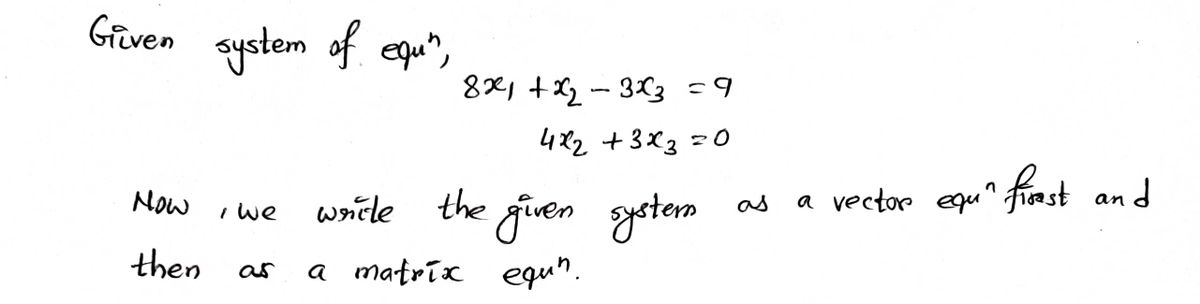 Given system of equⁿ,
8x₁ + x₂ - 3x₃ = 9
4x₂ + 3x₃ = 0
Now, we write the given system as a vector equⁿ first and
then as a matrix equⁿ.